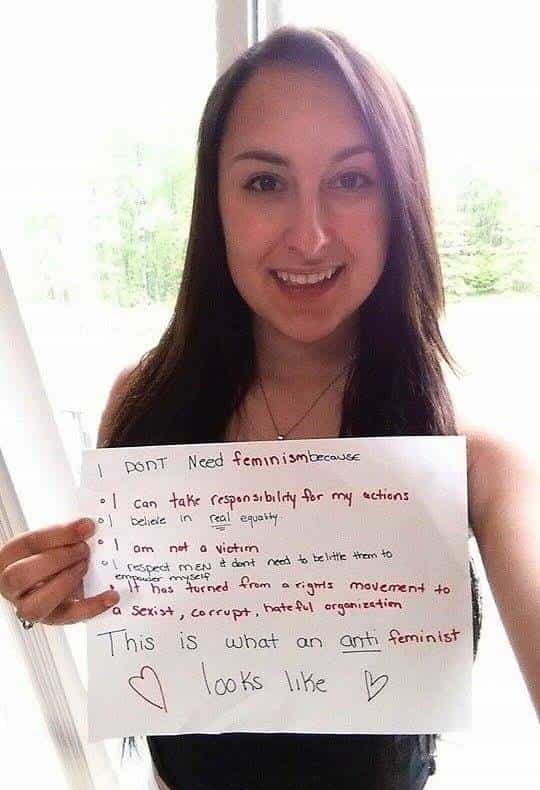 I DON'T Need feminism because
I can take responsibility for my actions
I believe in real equality.
I am not a victim
I respect MEN & dont need to belittle them to
empower myself
It has turned from a rights movement to
a sexist, corrupt, hateful organization
This is what an anti feminist
looks like